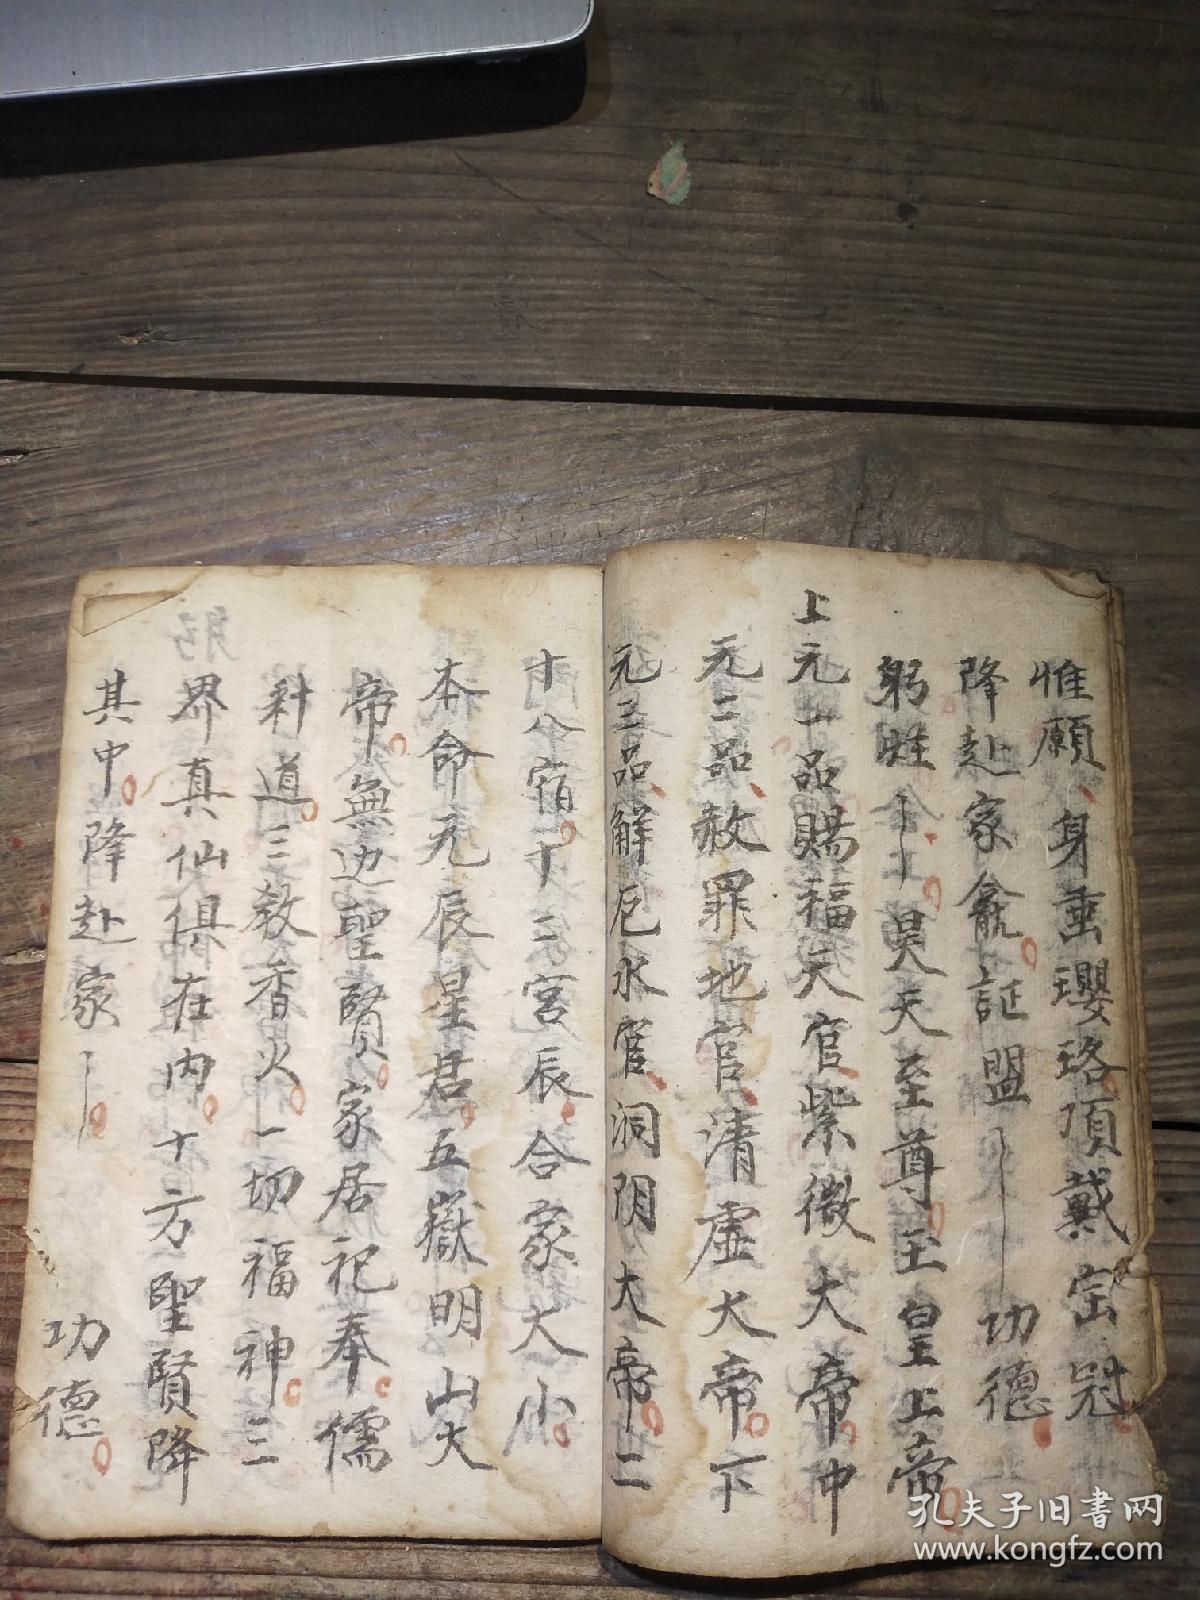 惟願身垂瓔珞頂戴宝冠
降赴家龕証盟 功德
躬㘴仝｜昊天至尊玉皇上帝
上元一品賜福天官紫微大帝中
元二品赦罪地官清虛大帝下
元三品解厄水官洞阴大帝二
十八宿十二宮辰合家大小
本命元辰星君五嶽明山大
帝無边聖賢家居祀奉儒
釆道三教香火一切福神三
界真仙俱在内十方聖賢降
其中降赴家｜ 功德
孔夫子旧书网
www.kongfz.com